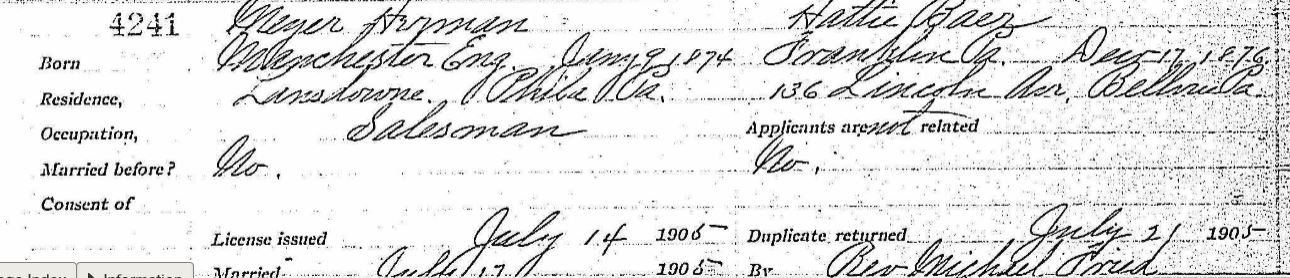 4241 Meyer Herman Hattie Baer
Born Manchester Eng. Jany 9, 1874 Franklin Pa. Dec 17, 1876
Residence, Lansdowne. Phila Pa. 136 Lincoln Av. Bellvue Pa.
Occupation, Salesman Applicants are not related
Married before? No. No.
Consent of
License issued July 14 1905 Duplicate returned July 21 1905
Married July 17 1905 By Rev Michael Fried
Information